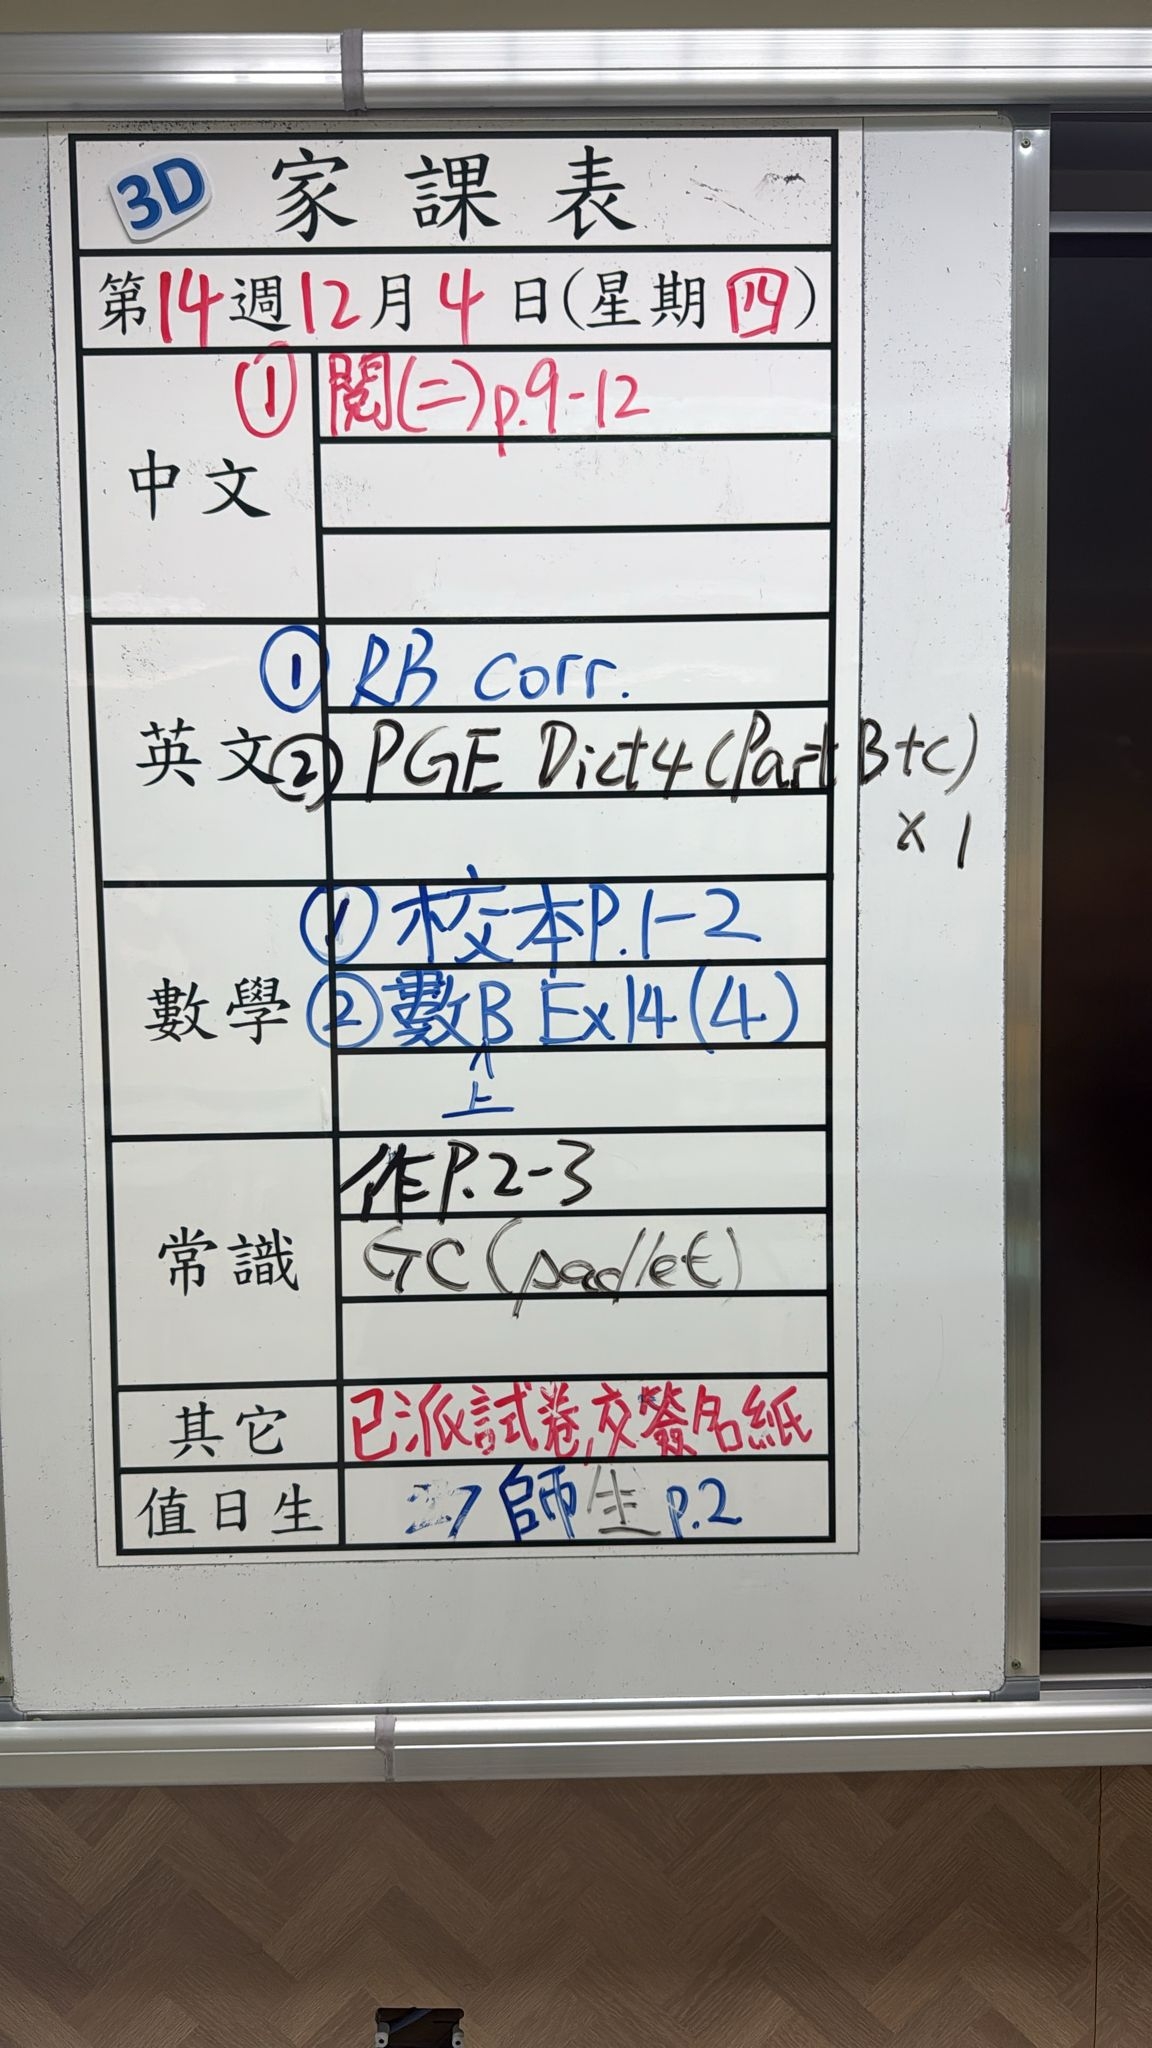 3D 家課表
第14週12月4日(星期四)
中文
① 閱(二)p.9-12
英文
① RB corr.
② PGE Dict4 (Part B+C)
x 1
數學
① 校本P.1-2
② 數B Ex14(4)
上
常識
作P.2-3
GC (padlet)
其它 已派試卷,交簽名紙
值日生 27 師生 p.2